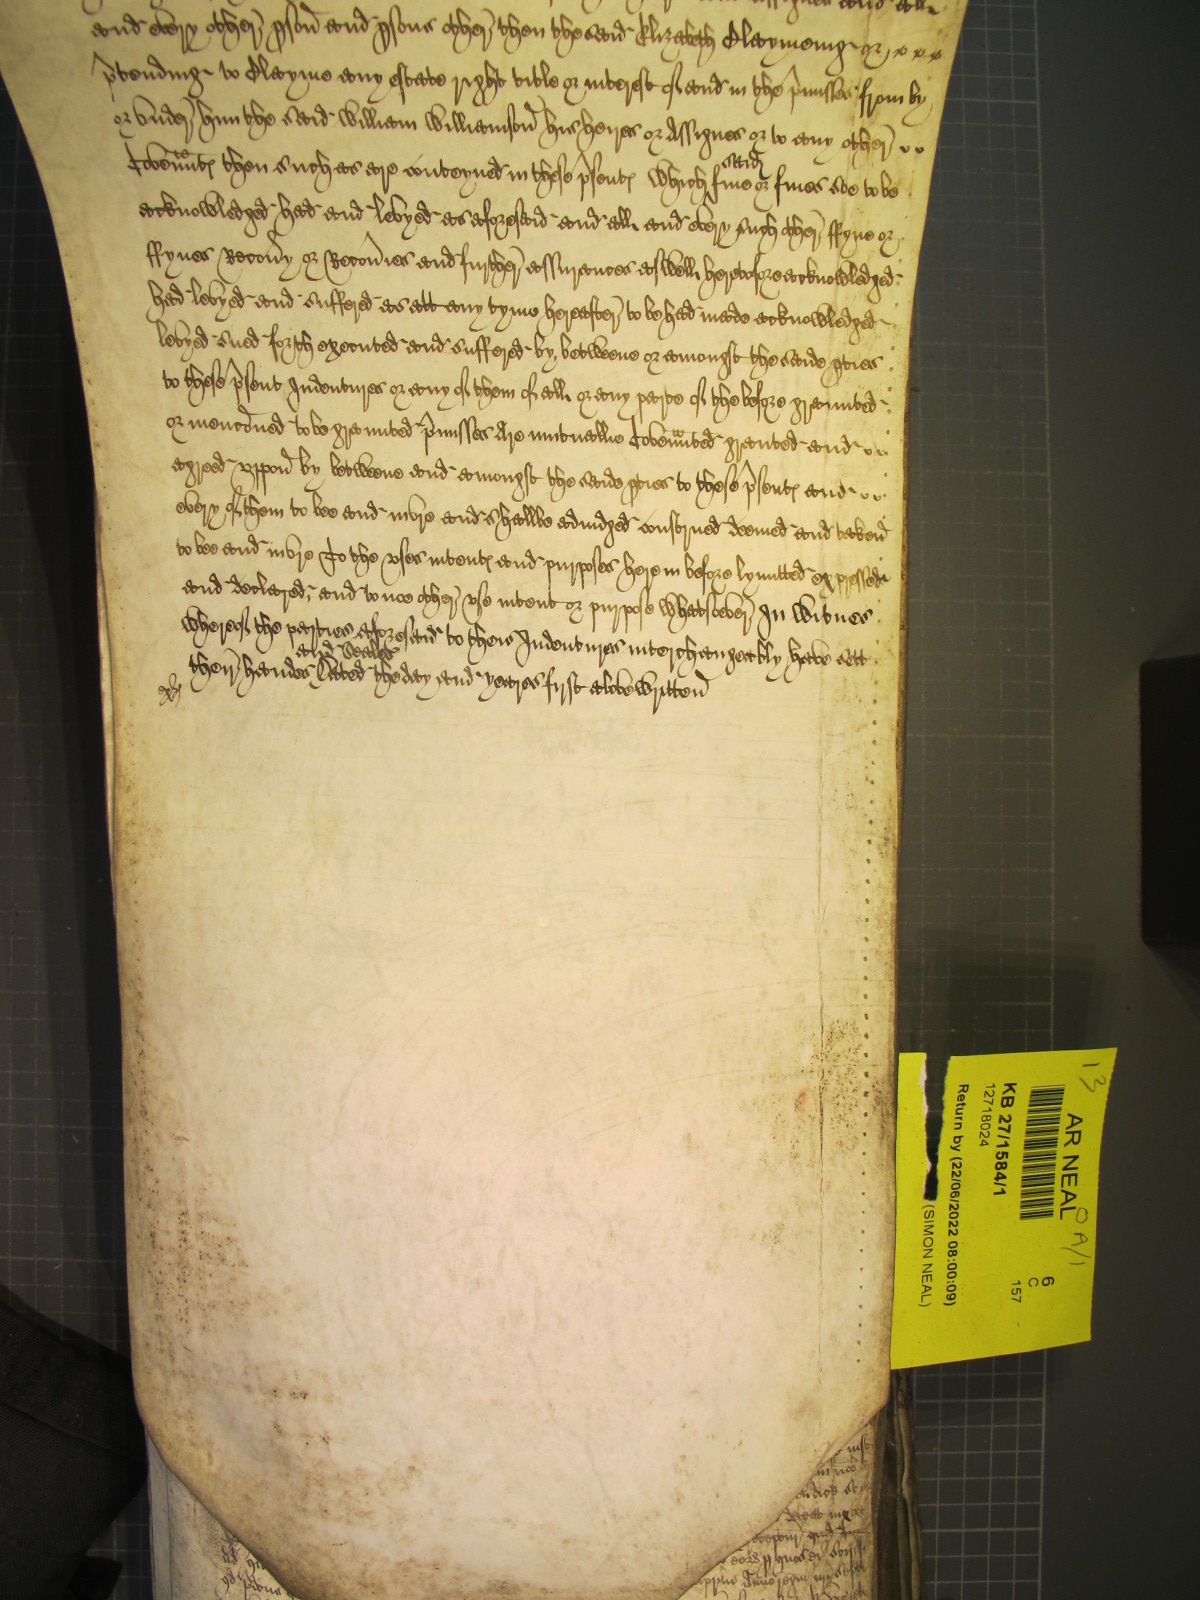 and every other p̱son and p̱sons other then the said Elizabeth Claymeing or x x x
p̄tending to Clayme any estate right title or interest of and in the p̄misses from by
or under him the said William Williamson his heires or Assignes or to any other
Coven̄nt℮ then such as are conteyned in these p̄sent℮ Which said fine or fines soe to be
acknowledged had and levyed as aforesaid and all and every such other ffyne or
ffynes Recov̄y or Recov̄ies and further assurances aswell heretofore acknowledged
had levyed and suffered as att any tyme hereafter to be had made acknowledged
levyed sued forth executed and suffered by betweene or amongst the saide p̱ties
to these p̄sent Indentures or any of them of all or any parte of the before graunted
or menc̄oned to be graunted p̄misses Are mutuallie Coven̄nted graunted and
agreed vppon by betweene and amongst the saide p̱ties to these p̄sent℮ and
every of them to bee and inure and shallbe adiudged construed deemed and taken
to bee and inure To the vses intent℮ and purposes herein before lymitted expressed
and declared, and to noe other vse intent or purpose whatsoever In witnes
whereof the parties aforesaid to theis Indentures interchangeably have sett
their handes and Seales dated the day and yeares first abovewritten
13
AR NEAL
6
C
157
KB 27/1584/1
12718024
Return by (22/06/2022 08:00:09)
(SIMON NEAL)